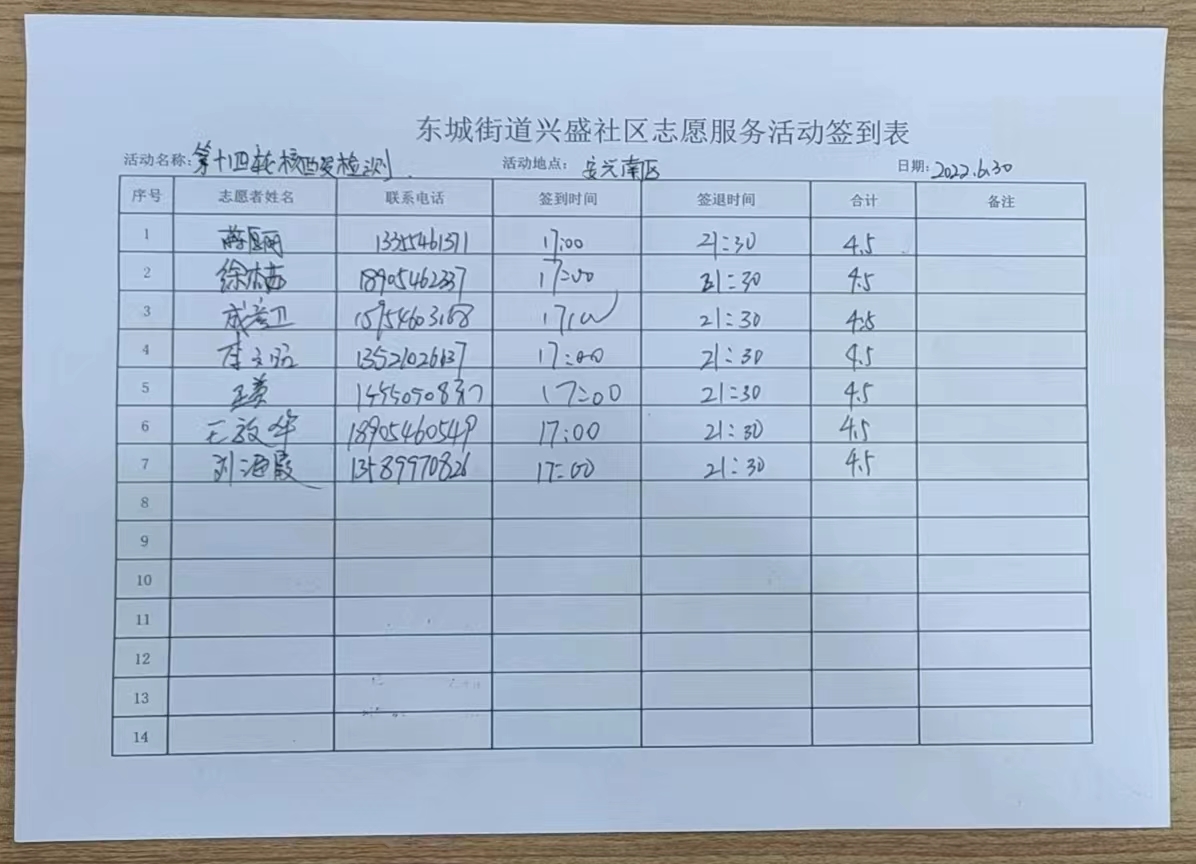 东城街道兴盛社区志愿服务活动签到表
活动名称：第十四轮核酸检测 活动地点：安兴南区 日期：2022.6.30
序号 志愿者姓名 联系电话 签到时间 签退时间 合计 备注
1 13355461371 17:00 21:30 4.5
2 18905462337 17:00 21:30 4.5
3 15954603168 17:00 21:30 4.5
4 17:00 21:30 4.5
5 17:00 21:30 4.5
6 王敬华 18905460549 17:00 21:30 4.5
7 刘海霞 13589970826 17:00 21:30 4.5
8
9
10
11
12
13
14